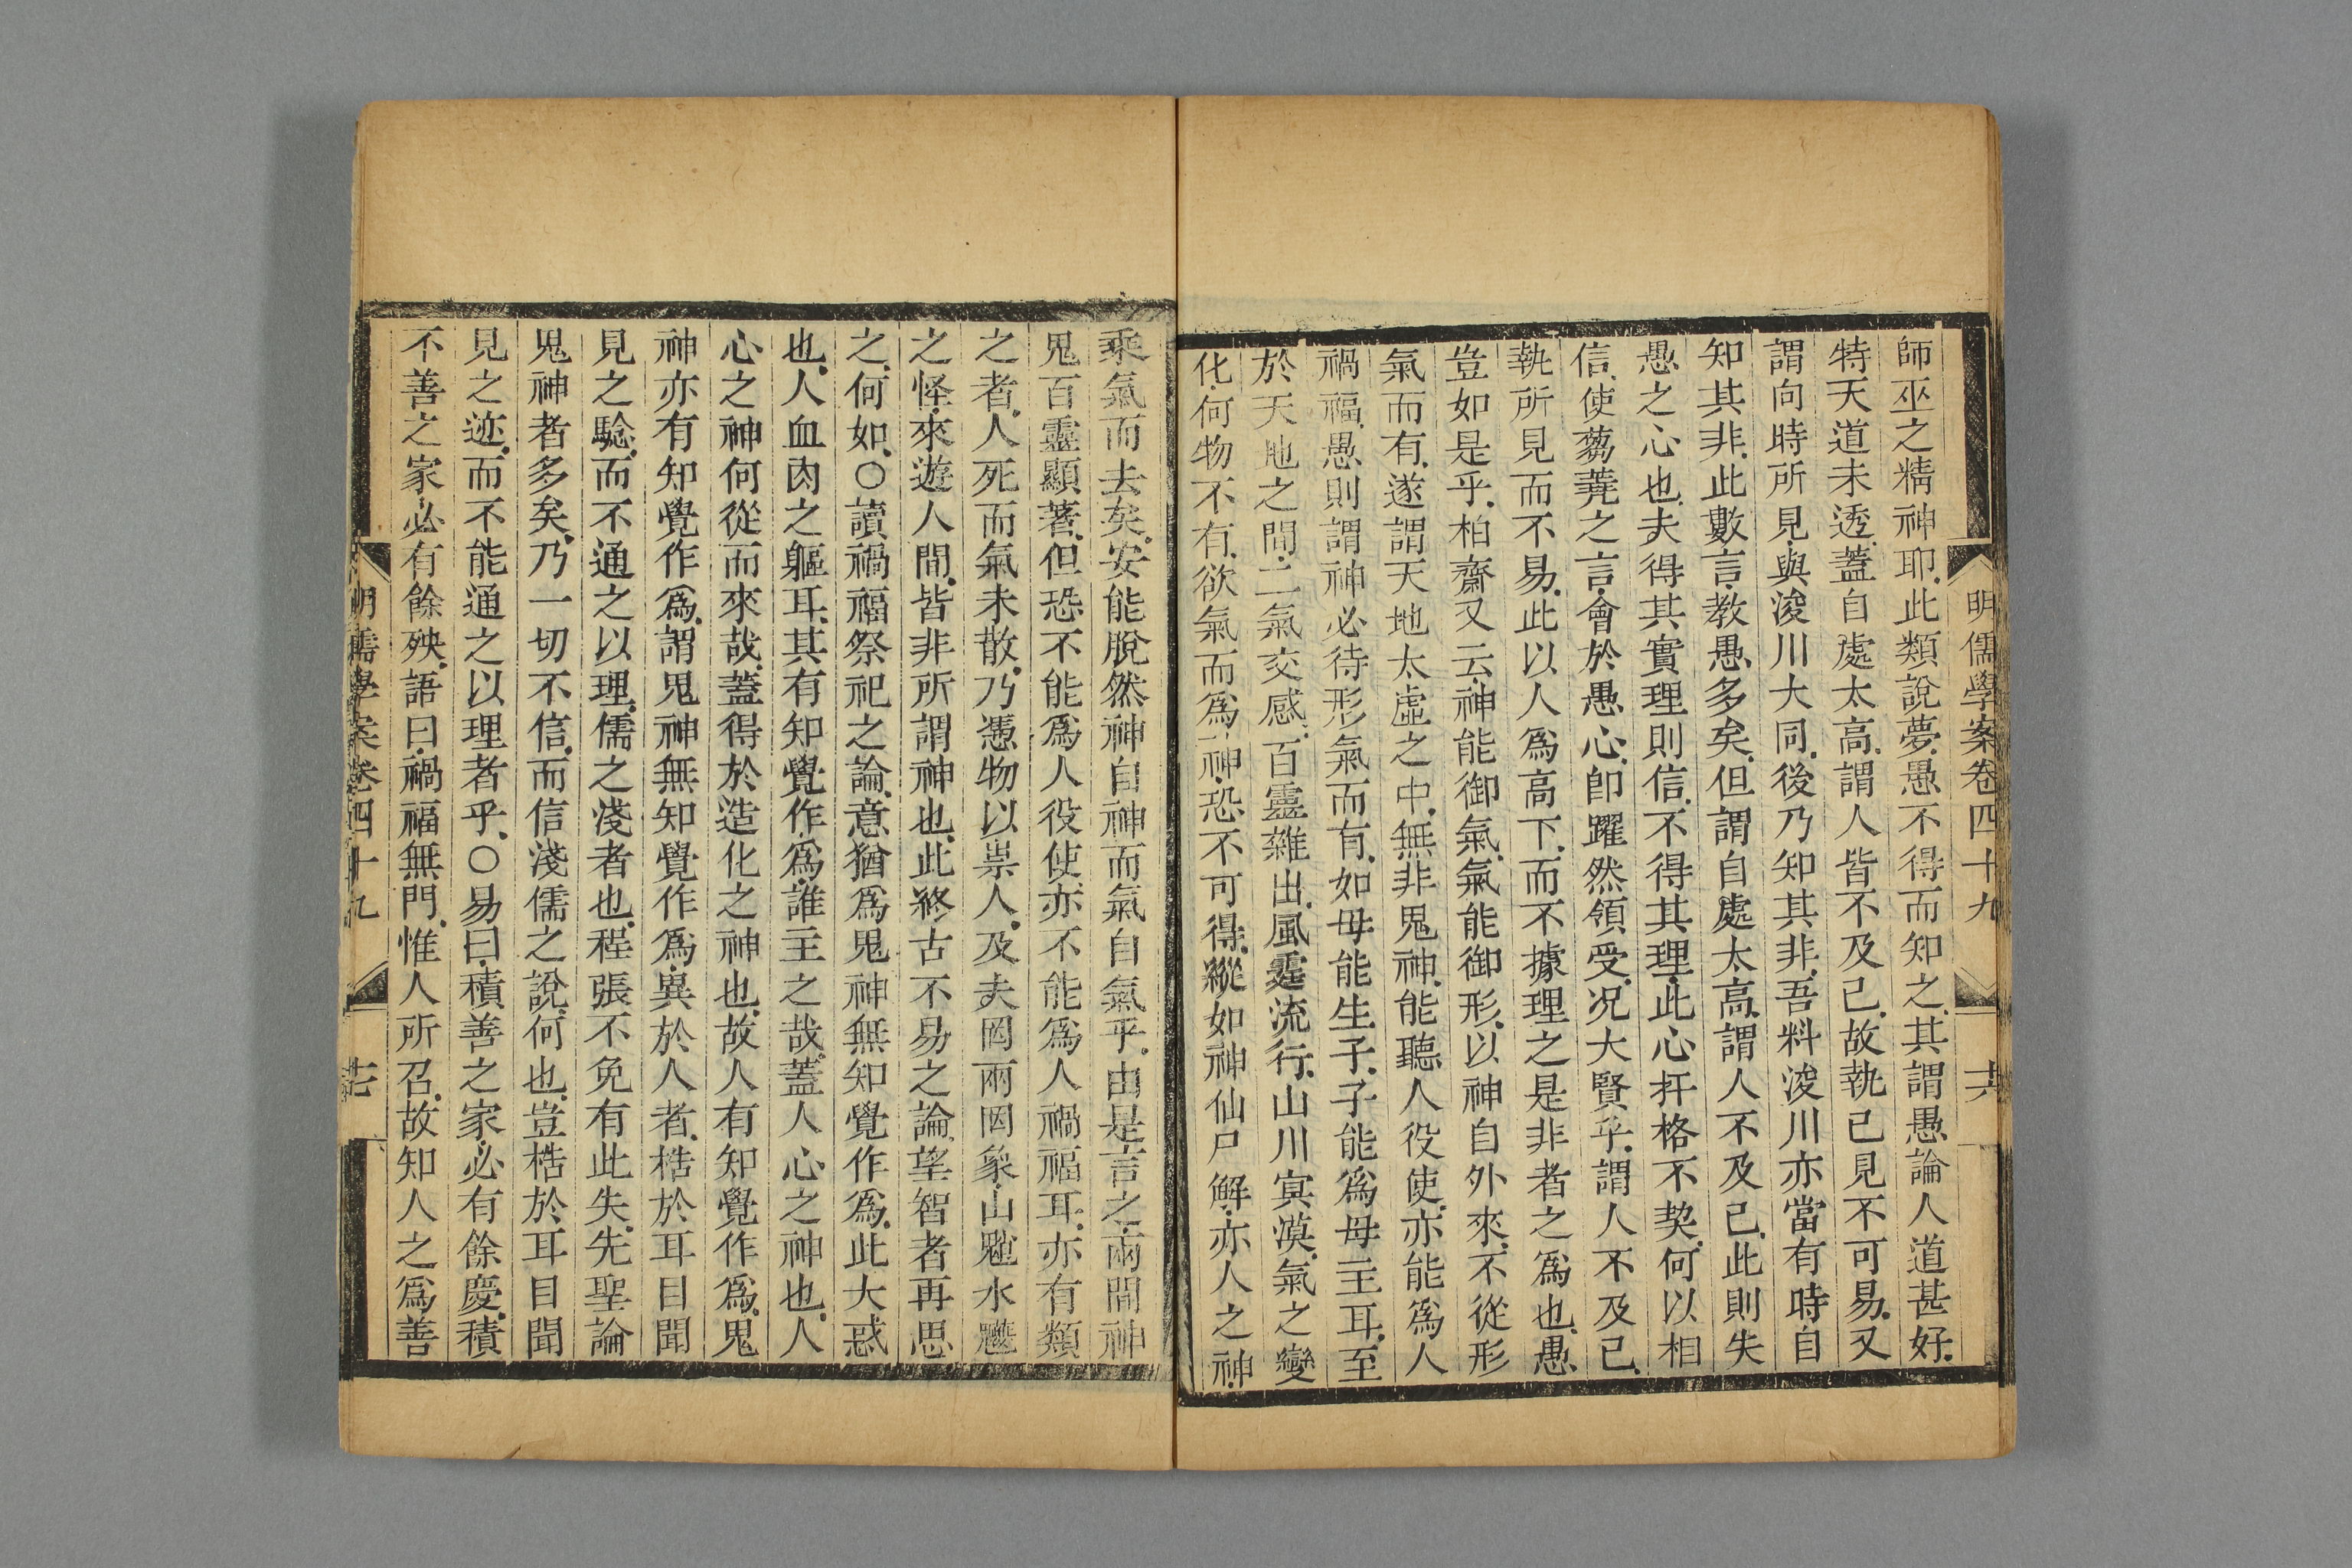 明儒學案卷四十九
師巫之精神耶.此類說夢.愚不得而知之.其謂愚論人道甚好.
特天道未透.蓋自處太高.謂人皆不及已.故執已見不可易.又
謂向時所見.與浚川大同.後乃知其非.吾料浚川亦當有時自
知其非.此數言.教愚多矣.但謂自處太高.謂人不及已.此則失
愚之心也.夫得其實理則信.不得其理.此心扞格不契.何以相
信.使蒭蕘之言.會於愚心.卽躍然領受.况大賢乎.謂人不及已.
執所見而不易.此以人爲高下.而不據理之是非者之爲也.愚
豈如是乎.柏齋又云.神能御氣.氣能御形.以神自外來.不從形
氣而有.遂謂天地太虛之中.無非鬼神.能聽人役使.亦能爲人
禍福.愚則謂神必待形氣而有.如母能生子.子能爲母主耳.至
於天地之間.二氣交感.百靈雜出.風霆流行.山川㝠漠.氣之變
化.何物不有.欲氣而爲神.恐不可得.縱如神仙尸解.亦人之神.
乘氣而去矣.安能脫然神自神而氣自氣乎.由是言之.兩間神
鬼百靈顯著.但恐不能爲人役使.亦不能爲人禍福耳.亦有類
之者.人死而氣未散.乃憑物以祟人.及夫罔兩罔象.山魈水夔
之怪.來遊人間.皆非所謂神也.此終古不易之論.望智者再思
之.何如.○讀禍福祭祀之論.意猶爲鬼神無知覺作爲.此大惑
也.人血肉之軀耳.其有知覺作爲.誰主之哉.蓋人心之神也.人
心之神何從而來哉.蓋得於造化之神也.故人有知覺作爲.鬼
神亦有知覺作爲.謂鬼神無知覺作爲.異於人者.梏於耳目聞
見之驗.而不通之以理.儒之淺者也.程張不免有此失.先聖論
鬼神者多矣.乃一切不信.而信淺儒之說.何也.豈梏於耳目聞
見之迹.而不能通之以理者乎.○易曰.積善之家.必有餘慶.積
不善之家.必有餘殃.語曰.禍福無門.惟人所召.故知人之爲善
明儒學案卷四十九